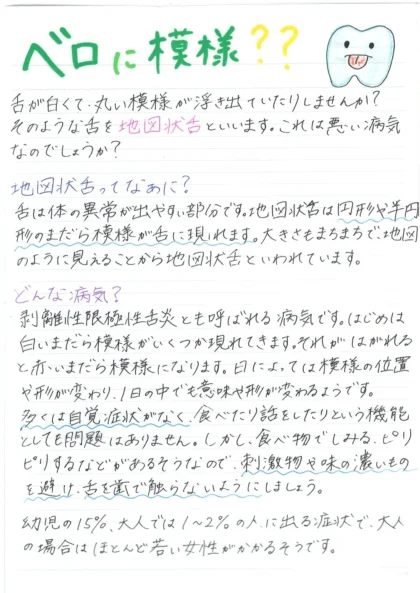 ベロに模様??
舌が白くて、丸い模様が浮き出ていたりしませんか?
そのような舌を地図状舌といいます。これは悪い病気
なのでしょうか?
地図状舌ってなあに?
舌は体の異常が出やすい部分です。地図状舌は円形や半円
形のまだら模様が舌に現れます。大きさもまちまちで、地図
のように見えることから地図状舌といわれています。
どんな病気?
剥離性限極性舌炎とも呼ばれる病気です。はじめは
白いまだら模様がいくつか現れてきます。それがはがれる
と赤いまだら模様になります。日によっては模様の位置
や形が変わり、1日の中でも意味や形が変わるようです。
多くは自覚症状がなく、食べたり話をしたりという機能
としても問題はありません。しかし、食べ物でしみる、ピリ
ピリするなどがあるそうなので、刺激物や味の濃いもの
を避け、舌を歯で触らないようにしましょう。
幼児の15%、大人では1~2%の人に出る症状で、大人
の場合はほとんど若い女性がかかるそうです。